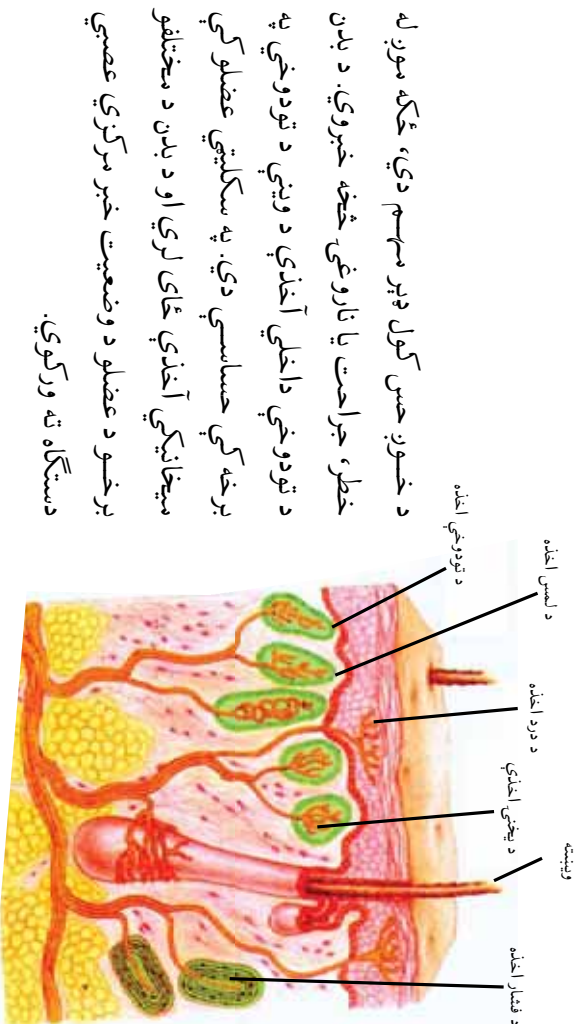 د خوږ حس کول ډېر مهم دي، ځکه موږ له
خطر، جراحت یا ناروغۍ څخه خبروي. د بدن
د تودوخې داخلي آخذې د وینې د تودوخې په
برخه کې حساسې دي. په سکلیټي عضلو کې
میخانیکي آخذې ځای لري او د بدن د مختلفو
برخو د عضلو د وضعیت خبر مرکزي عصبي
دستگاه ته ورکوي.
د تودوخې اخذه
د لمس اخذه
د درد اخذه
د یخنۍ اخذې
وېښته
د فشار اخذه